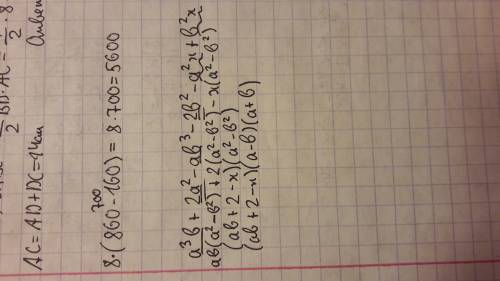 2 BD·AC = 1/2 · 8
AC = AD + DC = 14 см
700
8·(860-160) = 8·700 = 5600
a³b + 2a² - ab³ - 2b² - a²x + b²x
ab(a²-b²) + 2(a²-b²) - x(a²-b²)
(ab+2-x)(a²-b²)
(ab+2-x)(a-b)(a+b)